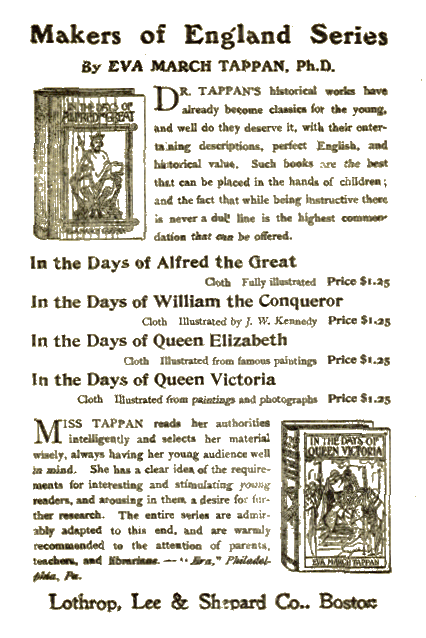 Makers of England Series
By EVA MARCH TAPPAN, Ph.D.
IN THE DAYS OF
ALFRED THE GREAT
EVA MARCH TAPPAN
DR. TAPPAN'S historical works have
already become classics for the young,
and well do they deserve it, with their enter-
taining descriptions, perfect English, and
historical value. Such books are the best
that can be placed in the hands of children;
and the fact that while being instructive there
is never a dull line is the highest commen-
dation that can be offered.
In the Days of Alfred the Great
Cloth Fully illustrated Price $1.25
In the Days of William the Conqueror
Cloth Illustrated by J. W. Kennedy Price $1.25
In the Days of Queen Elizabeth
Cloth Illustrated from famous paintings Price $1.25
In the Days of Queen Victoria
Cloth Illustrated from paintings and photographs Price $1.25
MISS TAPPAN reads her authorities
intelligently and selects her material
wisely, always having her young audience well
in mind. She has a clear idea of the require-
ments for interesting and stimulating young
readers, and arousing in them a desire for fur-
ther research. The entire series are admir-
ably adapted to this end, and are warmly
recommended to the attention of parents,
teachers, and librarians. — "Era," Philadel-
phia, Pa.
IN THE DAYS OF
QUEEN VICTORIA
EVA MARCH TAPPAN
Lothrop, Lee & Shepard Co., Boston